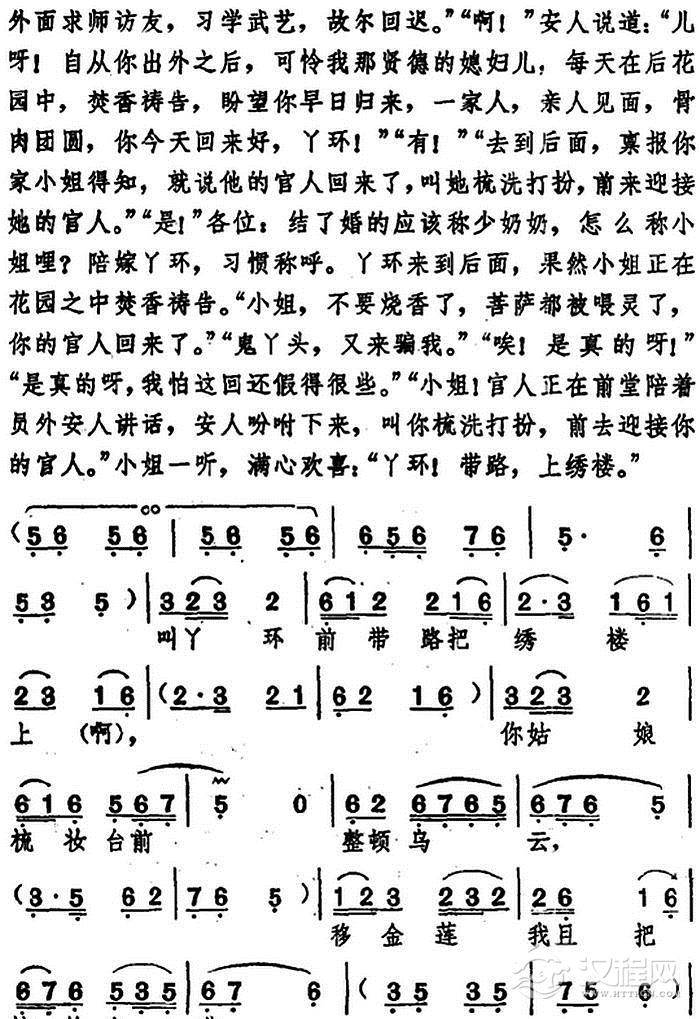 外面求师访友，习学武艺，故尔回迟。”“啊！”安人说道：“儿
呀！自从你出外之后，可怜我那贤德的媳妇儿，每天在后花
园中，焚香祷告，盼望你早日归来，一家人，亲人见面，骨
肉团圆，你今天回来好，丫环！”“有！”“去到后面，禀报你
家小姐得知，就说他的官人回来了，叫她梳洗打扮，前来迎接
她的官人。”“是！”各位：结了婚的应该称少奶奶，怎么称小
姐哩？陪嫁丫环，习惯称呼。丫环来到后面，果然小姐正在
花园之中焚香祷告。“小姐，不要烧香了，菩萨都被喂灵了，
你的官人回来了。”“鬼丫头，又来骗我。”“唉！是真的呀！”
“是真的呀，我怕这回还假得很些。”“小姐！官人正在前堂陪着
员外安人讲话，安人吩咐下来，叫你梳洗打扮，前去迎接你
的官人。”小姐一听，满心欢喜：“丫环！带路，上绣楼。”
(56 56 | 56 56 | 656 76 | 5· 6 |
53 5) | 323 2 | 612 216 | 2·3 161 |
叫丫 环 前带 路把 绣 楼
23 16 | (2·3 21 | 62 16) | 323 2 |
上 (啊)， 你姑 娘
616 567 | 5 0 | 62 6765 | 676 5 |
梳妆台前 整顿乌 云，
(3·5 62 | 76 5) | 123 232 | 26 16 |
移金莲 我且 把
676 535 | 67 6 | (35 35 | 75 6) |
汉程网
WWW.HTTPCN.COM